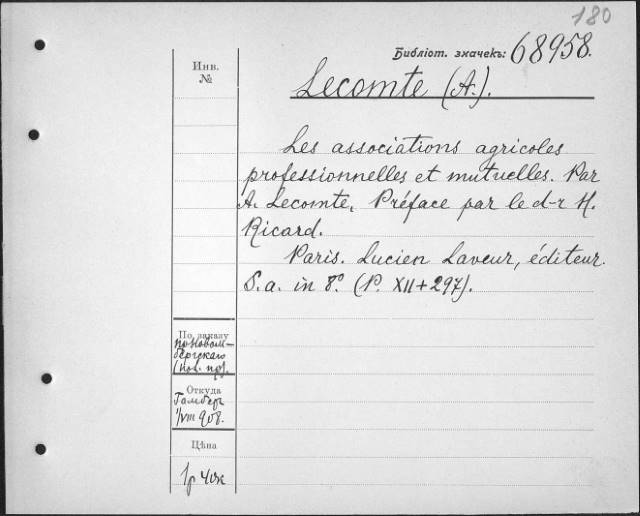 180
Библіот. значекъ: 68958.
Инв.
№
Lecomte (A.).
Les associations agricoles
professionnelles et mutuelles. Par
A. Lecomte. Préface par le d-r H.
Ricard.
Paris. Lucien Laveur, éditeur.
S. a. in 8.° (P. XII+297).
По заказу
(нов. пр).
Откуда
1/VIII 908.
Цѣна
1р 40к